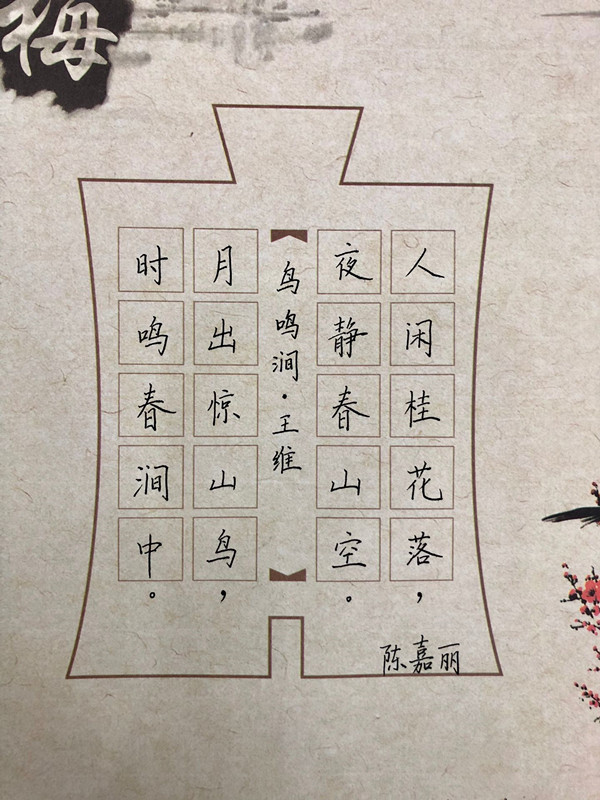 梅
人闲桂花落，
夜静春山空。
鸟鸣涧·王维
月出惊山鸟，
时鸣春涧中。
陈嘉丽